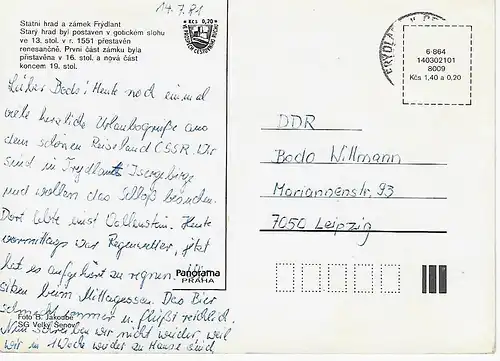 14.7.81
Státní hrad a zámek Frýdlant
Starý hrad byl postaven v gotickém slohu
ve 13. stol. v r. 1551 přestavěn
renesančně. První část zámku byla
přistavěna v 16. stol. a nová část
koncem 19. stol.
Kčs 0,20
6-864
140302101
8009
Kčs 1,40 a 0,20
Lieber Bodo! Heute noch einmal
viele herzliche Urlaubsgrüße aus
dem schönen Reiseland ČSSR. Wir
sind in Frydlant Isergebirge
und wollen das Schloß besuchen.
Dort lebte einst Wallenstein. Heute
vormittags war Regenwetter, jetzt
hat es aufgehört zu regnen
sitzen beim Mittagessen. Das Bier
schmeckt immer u. fließt reichlich.
Nun schreiben wir nicht wieder, weil
wir in 1 Woche wieder zu Hause sind
DDR
Bodo Willmann
Mariannenstr. 93
7050 Leipzig
Panorama
PRAHA
Foto B. Jakoubě
SG Velký Šenov